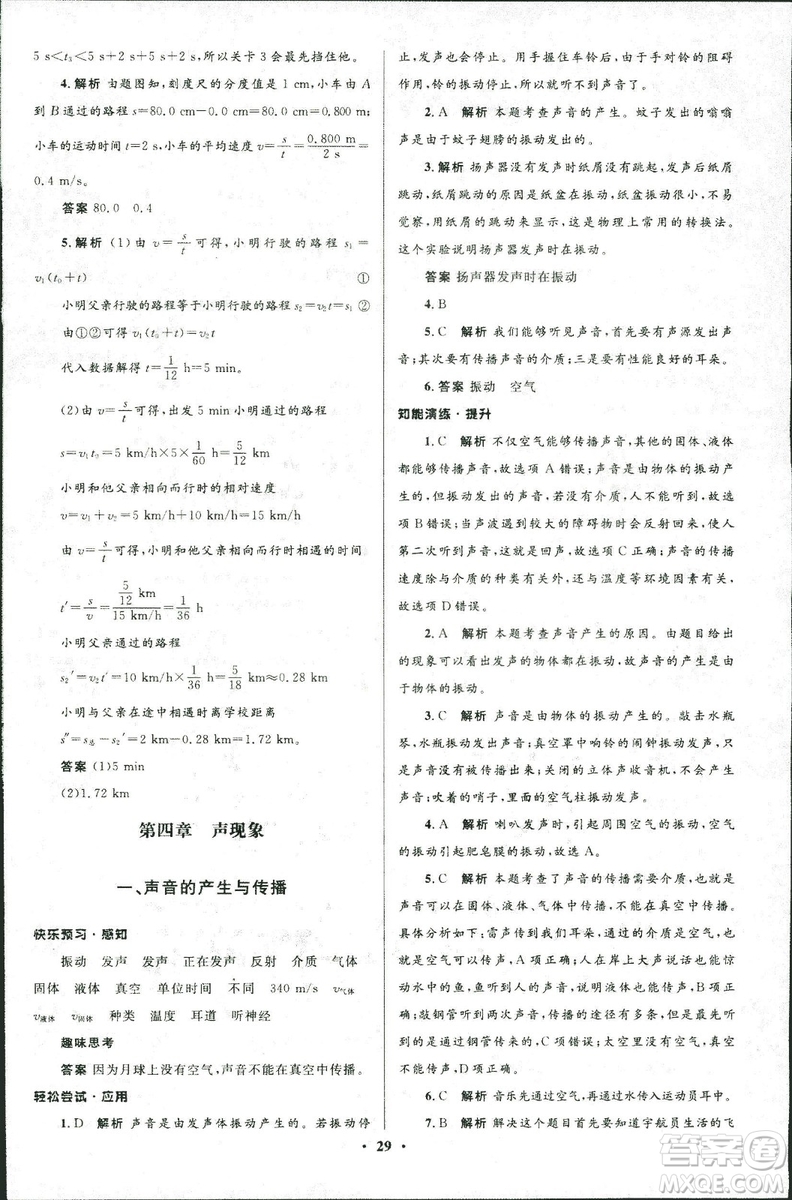 5 s<t₃<5 s+2 s+5 s+2 s，所以关卡 3 会最先挡住他。
4. 解析 由题图知，刻度尺的分度值是 1 cm，小车由 A
到 B 通过的路程 s=80.0 cm−0.0 cm=80.0 cm=0.800 m；
小车的运动时间 t=2 s，小车的平均速度 v=s/t=0.800 m/2 s=
0.4 m/s。
答案 80.0 0.4
5. 解析 (1)由 v=s/t 可得，小明行驶的路程 s₁=
v₁(t₀+t) ①
小明父亲行驶的路程等于小明行驶的路程 s₂=v₂t=s₁ ②
由①②可得 v₁(t₀+t)=v₂t
代入数据解得 t=1/12 h=5 min
(2)由 v=s/t 可得，出发 5 min 小明通过的路程
s=v₁t=5 km/h×5×1/60 h=5/12 km
小明和父亲相向而行时的相对速度
v=v₁+v₂=5 km/h+10 km/h=15 km/h
由 v=s/t 可得，小明和他父亲从相向而行到相遇的时间
t′=s/v=(5/12 km)/(15 km/h)=1/36 h
小明父亲通过的路程
s₂′=v₂t′=10 km/h×1/36 h=5/18 km≈0.28 km
小明与父亲在途中相遇时离学校距离
s″=s总−s₂′=2 km−0.28 km=1.72 km。
答案 (1)5 min
(2)1.72 km
第四章 声现象
一、声音的产生与传播
快乐预习·感知
振动 发声 发声 正在发声 反射 介质 气体
固体 液体 真空 单位时间 不同 340 m/s v气体
v液体 v固体 种类 温度 耳道 听神经
趣味思考
答案 因为月球上没有空气，声音不能在真空中传播。
轻松尝试·应用
1. D 解析 声音是由发声体振动产生的。若振动停
止，发声也会停止。用手握住车铃后，由于手对铃的阻碍
作用，铃的振动停止，所以就不发声音了。
2. A 解析 本题考查声音的产生。蚊子发出的嗡嗡
声是由于蚊子翅膀的振动发出的。
3. 解析 扬声器没有发声时纸屑没有跳起，发声后纸屑
跳动，纸屑跳动的原因是纸盆在振动，但纸盆的振动小，不易
觉察，用纸屑的跳动来显示，这是物理上常用的转换法。
这个实验说明扬声器发声时在振动。
答案 扬声器发声时在振动
4. B
5. C 解析 我们能够听见声音，首先要有声源发出声
音；其次要有传播声音的介质；三是要有性能良好的耳朵。
6. 答案 振动 空气
知能演练·提升
1. C 解析 不仅空气能够传播声音，其他的固体、液体
都可以传播声音，故选项 A 错误；声音是由物体的振动产
生的，但振动发声后，若没有介质，人不能听到，故选
项 B 错误；当声波遇到较大的障碍物时会反射回来，使人
第二次听到声音，故选项 C 正确；声音的传播
速度除与介质的种类有关外，还与温度等环境因素有关，
故选项 D 错误。
2. A 解析 本题考查声音产生的原因。由题目给出
的现象可以看出发声的物体都在振动，所以声音是
由于物体的振动产生的。
3. C 解析 声音是由物体的振动产生的。敲击水瓶
琴，水瓶振动发出声音；真空罩中响铃的闹钟振动，但无
声音传出来；关闭的立体声收音机，不振动不能产生
声音；吹着的哨子，里面的空气柱振动产生声音。
4. A 解析 喇叭发声时，引起周围空气的振动，空气的
振动引起肥皂膜的振动，故选 A。
5. C 解析 本题考查了声音的传播需要介质，声音
可以在固体、液体、气体中传播，但不能在真空中传播。
具体分析如下：雷声传到我们耳朵，通过的介质是空气，也
就是空气传声，A 项正确；人在岸上大声说话，能惊
动水中的鱼，鱼听到声音，说明液体可以传声，B 项正
确；敲钢管听到两次声音，声音传播的途径有空气和钢
管，声音可以通过钢管传来，故 C 项错误；真空
不能传声，D 项正确。
6. C 解析 音乐先通过空气，再通过水传入运动员耳中。
7. B 解析 解决这个题目首先要知道宇航员生活的飞
29
答案圈
MXQE.COM